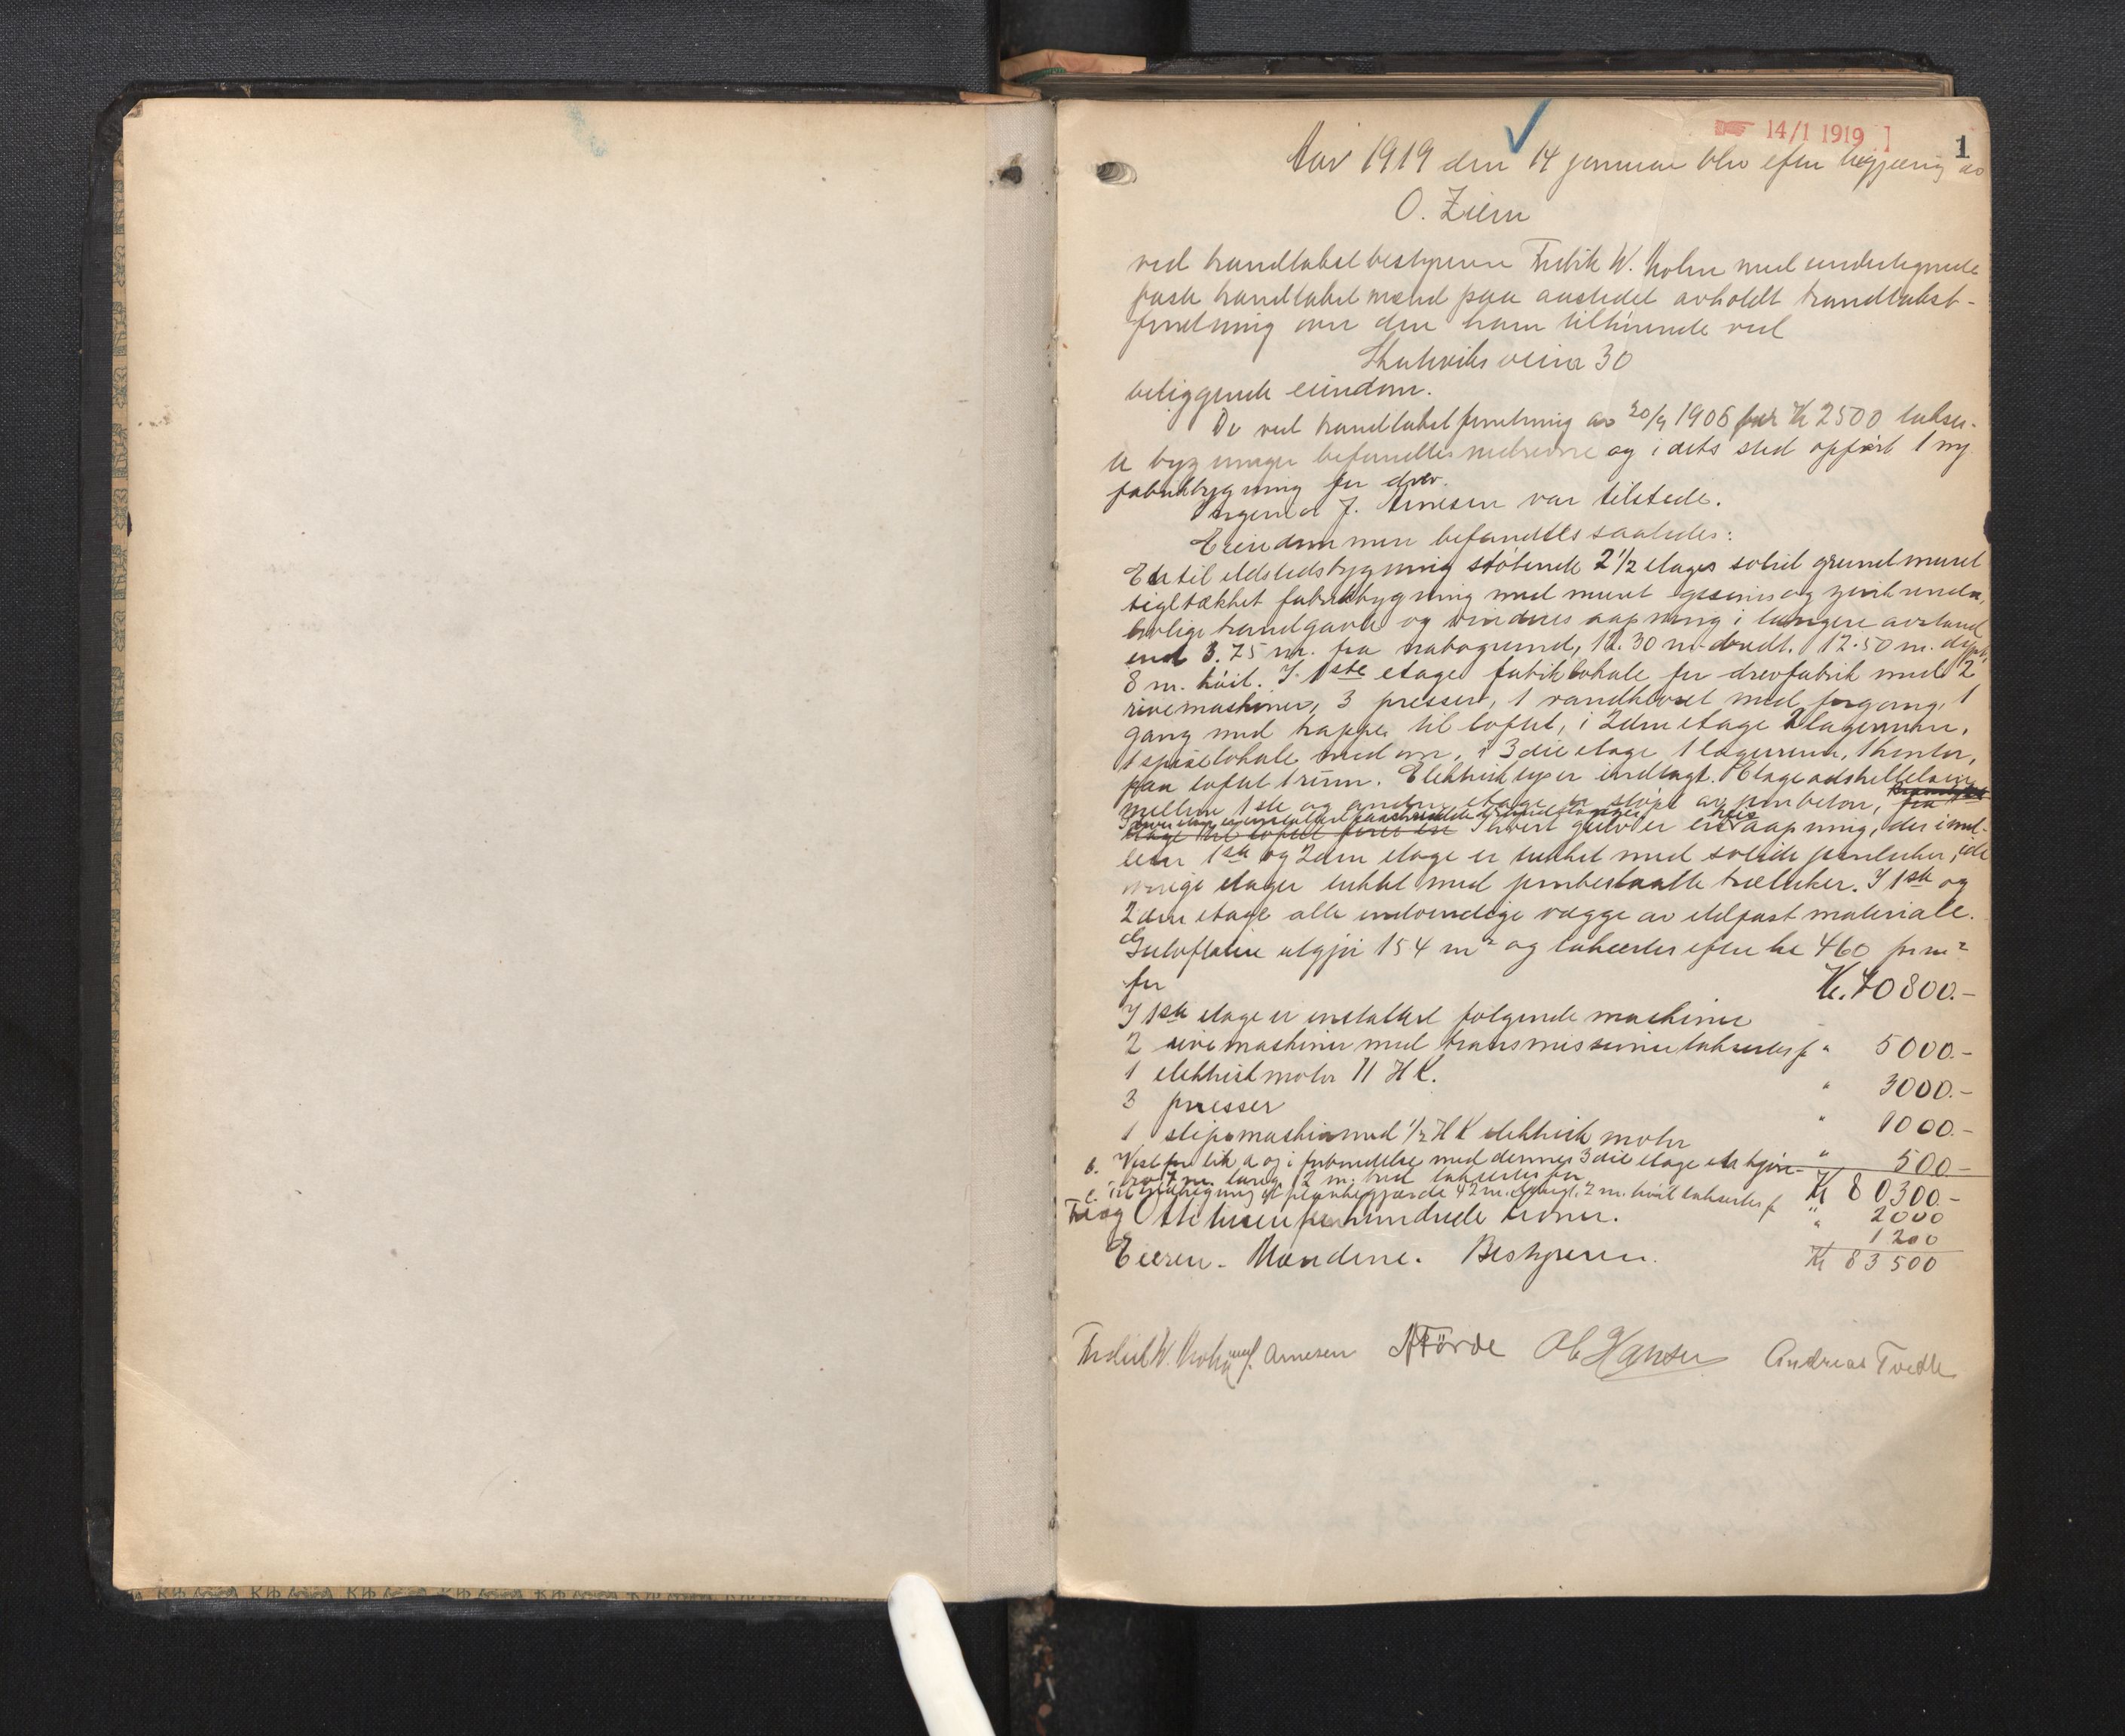 14/1 1919 ]
1
Aar 1919 den 14 januar blev efter begjæring av
O. Ziem
ved brandtakstbestyreren Fredrik W. Holm med undertegnede
faste brandtakstmænd paa aastedet avholdt brandtakst-
forretning over den ham tilhørende ved
veien 30
beliggende eiendom.
De ved brandtakstforretning av 20/9 1906 for Kr 2500 takser-
te bygninger befandtes nedrevne og i dets sted opført 1 ny
fabrikbygning for drev.
Ingeniør J. Arnesen var tilstede.
Eiendommen befandtes saaledes:
En til ildstedsbygning støtende 2 1/2 etages solid grundmuret
tegltækket fabrikbygning med muret gesims og zink render,
lovlige brandgavle og vindues aapning i længere avstand
end 3.75 m. fra nabogrund, 12.30 m. bredt. 12.50 m. dypt,
8 m. høit. I 1ste etage fabriklokale for drevfabrik med 2
rivemaskiner, 3 presser, 1 vandkloset med forgang, 1
gang med trappe til loftet, i 2den etage 2 lagerrum,
1 spiselokale med ovn, i 3die etage 1 lagerrum, 1 kontor,
paa loftet 1 rum. Elektrisk lys er indlagt. Etageadskillelsen
mellem 1ste og anden etage er støpt av jernbeton, fra
etage til loftet I hvert gulv er en heis aapning, der imel-
lem 1ste og 2den etage er lukket med solide jernluker, i de
øvrige etager lukket med jernbeslaatte træluker. I 1ste og
2den etage alle indvendige vægge av ildfast materiale.
Gulvflaten utgjør 154 m2 og takseres efter kr 460 pr m2
for Kr. 70800.-
I 1ste etage er installert følgende maskiner
2 rivemaskiner med transmissioner takseres f " 5000.-
1 elektrisk motor 11 HK. " 3000.-
3 presser " 1000.-
1 slipemaskin med 1/2 HK elektrisk motor " 500.-
b. Vest for lit. a og i forbindelse med dennes 3die etage et kjøre- Kr 80300.-
7 m. lang, 2 m. bred takseres for " 2000
c. Til indhegning et plankegjærde 42 m. langt, 2 m. høit takseres f " 1200
Tre og Otti tusen fem hundrede kroner. Kr 83500
Eieren. Mændene. Bestyreren.
Fredrik W. Holm J. Arnesen A Førde Ole Hansen Andreas Tvedt